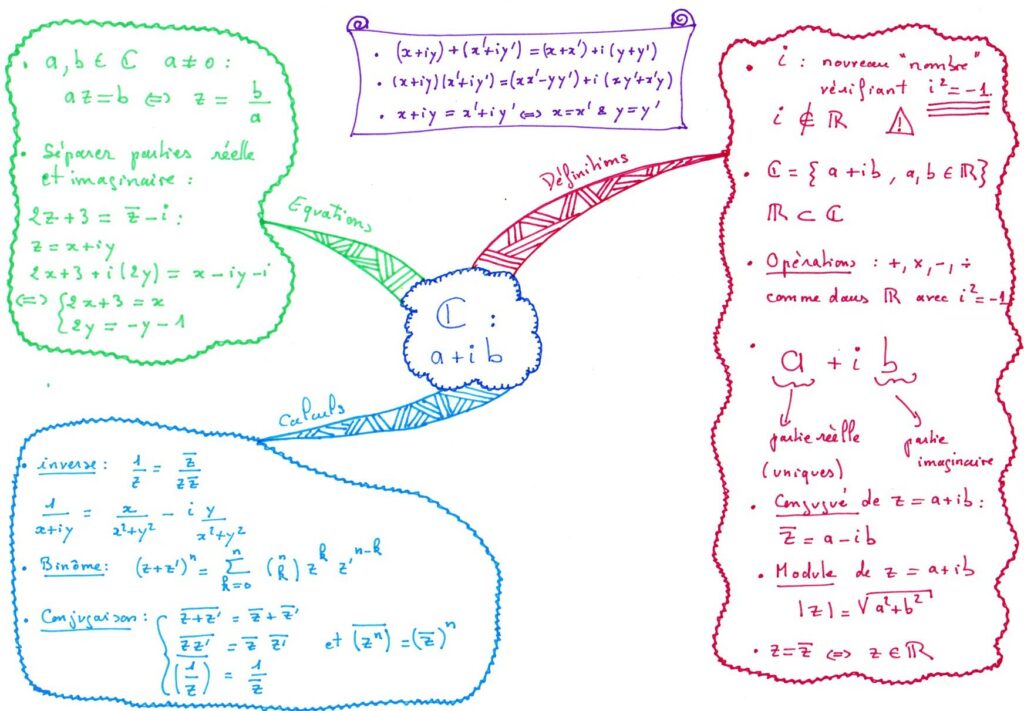 • a, b ∈ ℂ a ≠ 0 :
az = b ⇔ z = b/a
• Séparer parties réelle
et imaginaire :
2z + 3 = z̅ - i :
z = x + iy
2x + 3 + i(2y) = x - iy - i
⇔ { 2x + 3 = x
2y = -y - 1
• (x+iy) + (x'+iy') = (x+x') + i(y+y')
• (x+iy)(x'+iy') = (xx'-yy') + i(xy'+x'y)
• x+iy = x'+iy' ⇔ x=x' & y=y'
Equations
Définitions
ℂ :
a + i b
Calculs
• i : nouveau "nombre"
vérifiant i² = -1
i ∉ ℝ ⚠
• ℂ = { a + ib , a, b ∈ ℝ }
ℝ ⊂ ℂ
• Opérations : +, ×, -, ÷
comme dans ℝ avec i² = -1
• a + i b
partie réelle partie
(uniques) imaginaire
• Conjugué de z = a + ib :
z̅ = a - ib
• Module de z = a + ib
|z| = √(a² + b²)
• z = z̅ ⇔ z ∈ ℝ
• inverse : 1/z = z̅/(z z̅)
1/(x+iy) = x/(x²+y²) - i y/(x²+y²)
• Binôme : (z+z')ⁿ = ∑_{k=0}^{n} (n k) z^k z'^{n-k}
• Conjugaison : { \overline{z+z'} = z̅ + z̅'
\overline{zz'} = z̅ z̅' et \overline{(zⁿ)} = (z̅)ⁿ
\overline{(1/z)} = 1/z̅